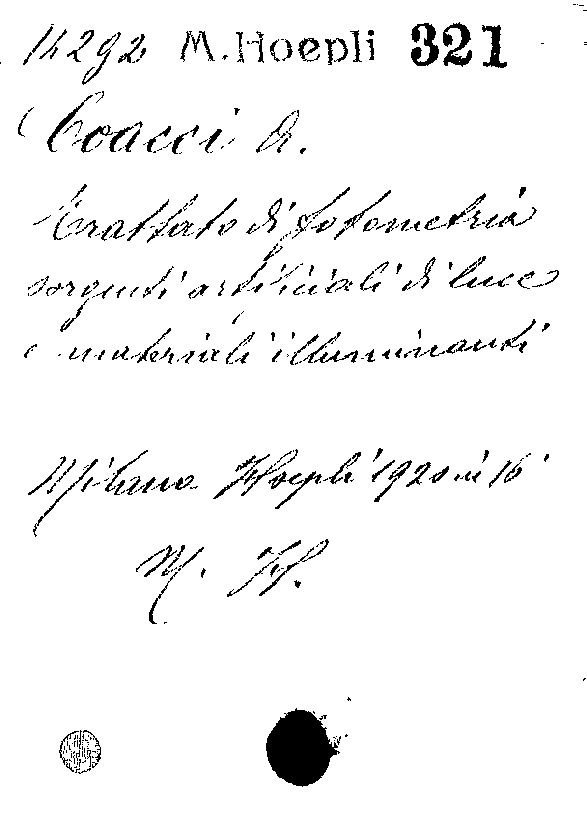 14292 M. Hoepli 321
Coacci A.
Trattato di fotometria
sorgenti artificiali di luce
e materiali illuminanti
Milano Hoepli 1920 in 16°
M. H.